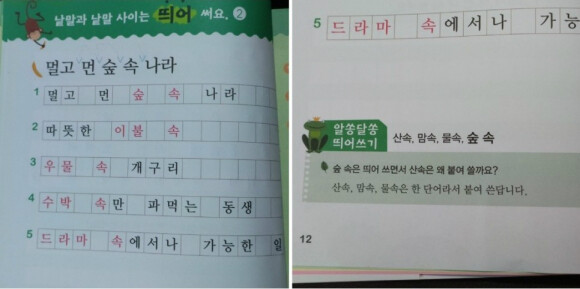 낱말과 낱말 사이는 띄어 써요. ②
멀고 먼 숲 속 나라
1 멀고 먼 숲 속 나라
2 따뜻한 이불 속
3 우물 속 개구리
4 수박 속만 파먹는 동생
5 드라마 속에서나 가능한 일
5 드라마 속에서나 가능
알쏭달쏭
띄어쓰기
산속, 맘속, 물속, 숲 속
숲 속은 띄어 쓰면서 산속은 왜 붙여 쓸까요?
산속, 맘속, 물속은 한 단어라서 붙여 쓴답니다.
12